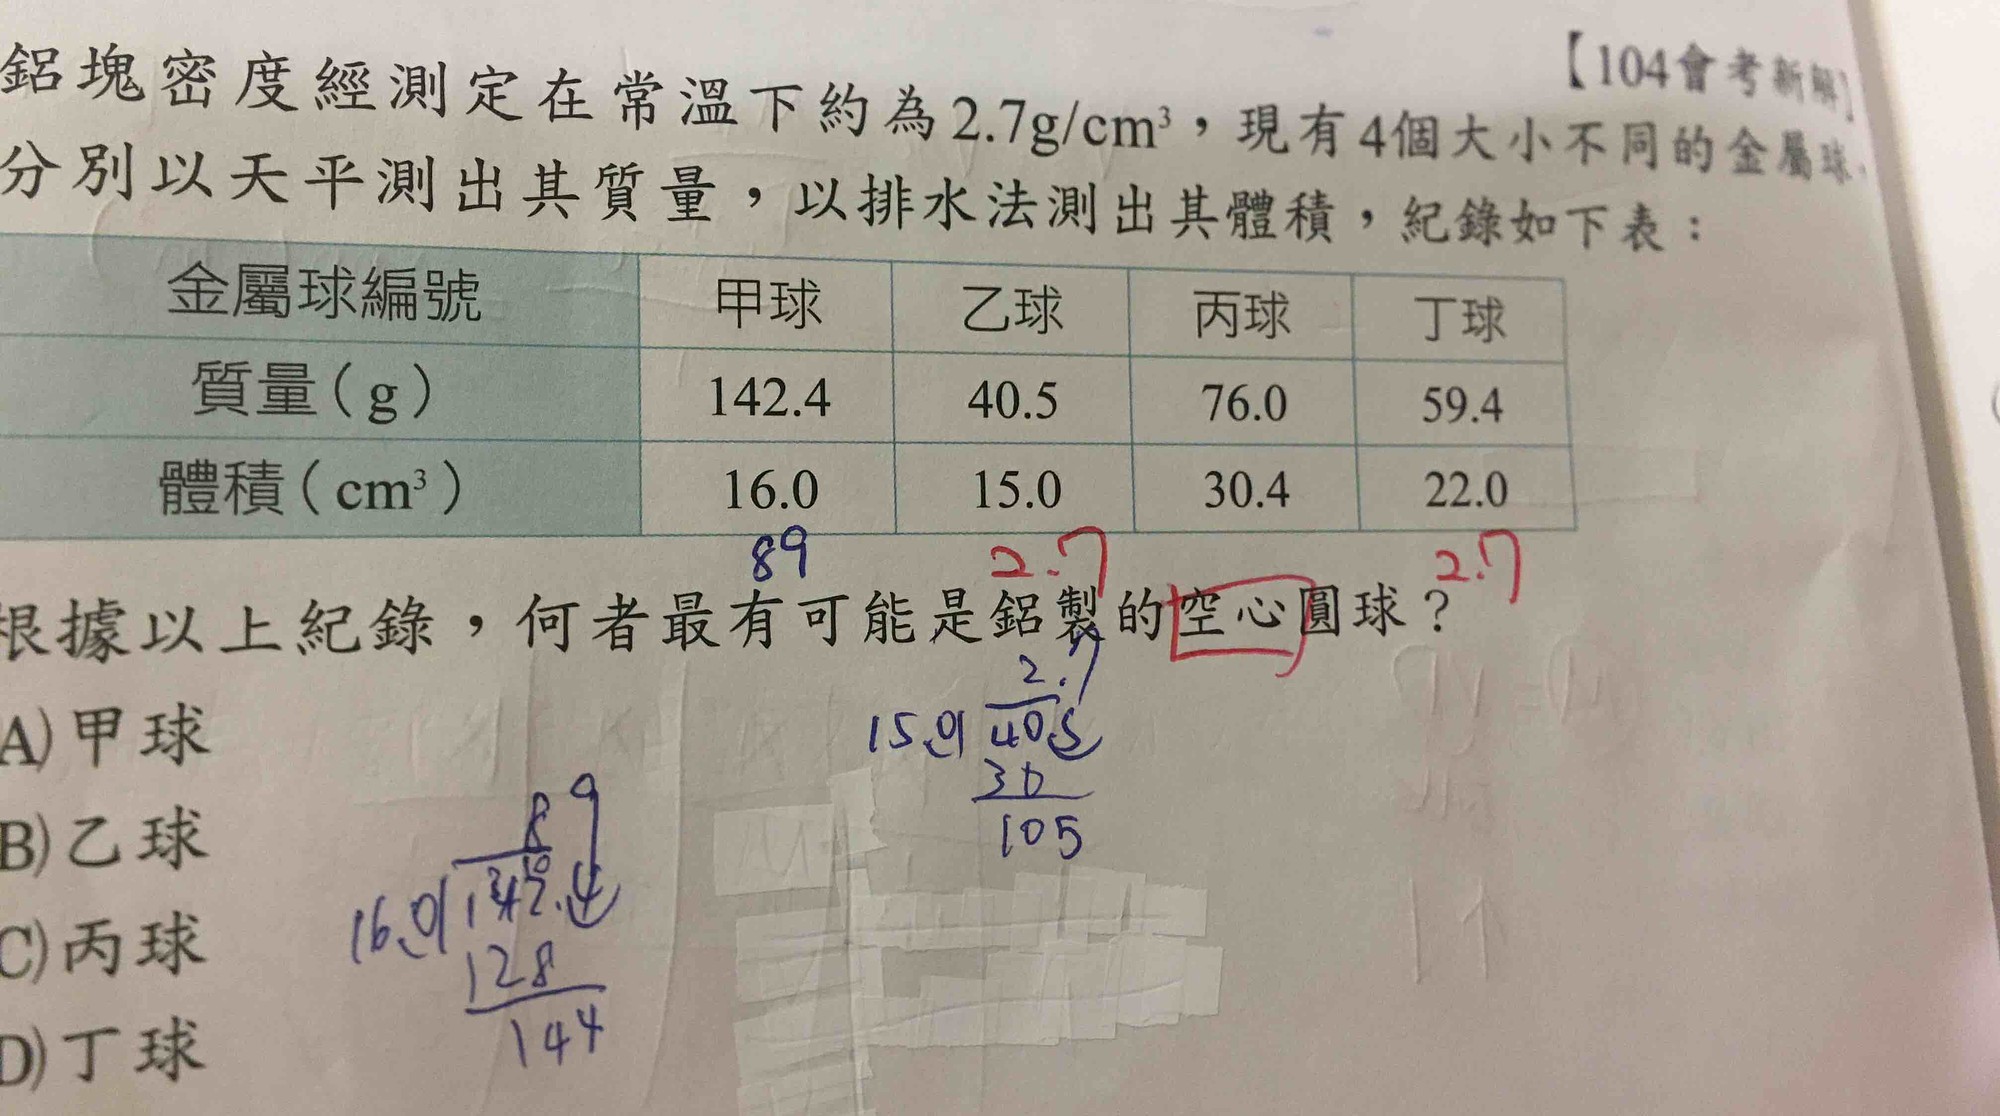 【104會考新解】
鋁塊密度經測定在常溫下約為2.7g/cm³，現有4個大小不同的金屬球，
分別以天平測出其質量，以排水法測出其體積，紀錄如下表：
金屬球編號 甲球 乙球 丙球 丁球
質量(g) 142.4 40.5 76.0 59.4
體積(cm³) 16.0 15.0 30.4 22.0
89 2.7 2.7
根據以上紀錄，何者最有可能是鋁製的空心圓球？
A)甲球
B)乙球
C)丙球
D)丁球
2.7
15.0 40.5
30
105
8 9
16.0 142.4
128
144